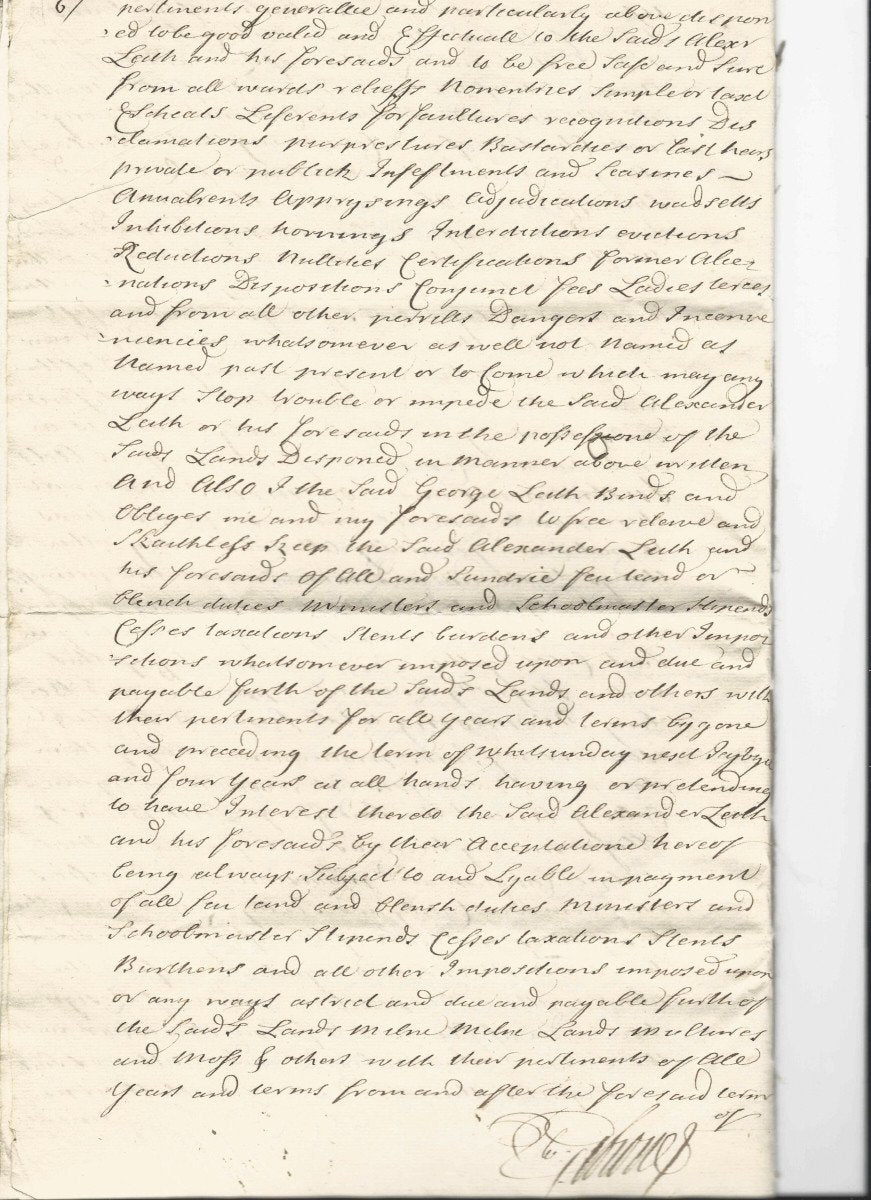 6/
pertinents generallie and particularly above dispon
-ed to be good valid and Effectuale to the Saids Alexr
Leith and his foresaids and to be free Safe and Sure
from all wards relieffs Nonentries Simple or taxt
Escheats Liferents forfaultures recognitions Dis
-clamations purprestures Bastardies or last heirs
private or publick Infeftments and Seasines ~
Anualrents Apprysings Adjudications wadsetts
Inhibitions hornings Interdictions evictions
Reductions Nullities Certifications former Alie-
-nations Dispositions Conjunct fees Ladies terces
and from all other perrills Dangers and Inconve
-niencies whatsomever as well not Named as
Named past present or to Come which may any
ways Stop trouble or impede the Said Alexander
Leith or his foresaids in the possessione of the
Saids Lands Disponed in manner above written
And Also I the Said George Leith Binds and
Obliges me and my foresaids to free releive and
Skaithless keep the Said Alexander Leith and
his foresaids of All and Sundrie feu teand or
blench duties Ministers and Schoolmaster Stipends
Cesses taxations Stents burdens and other Impo
-sitions whatsomever imposed upon and due and
payable furth of the Saids Lands and others with
their pertinents for all Years and terms bygone
and preceeding the term of Whitsunday next
and four Years at all hands having or pretending
to have Interest thereto the Said Alexander Leith
and his foresaids by their Acceptatione hereof
being always Subject to and Lyable in payment
of all feu land and blensh duties Ministers and
Schoolmaster Stipends Cesses taxations Stents
Burthens and all other Impositions imposed upon
or any ways astrict and due and payable furth of
the Saids Lands Milne Milne Lands Multures
and Moss & others with their pertinents of All
Years and terms from and after the foresaid term
of